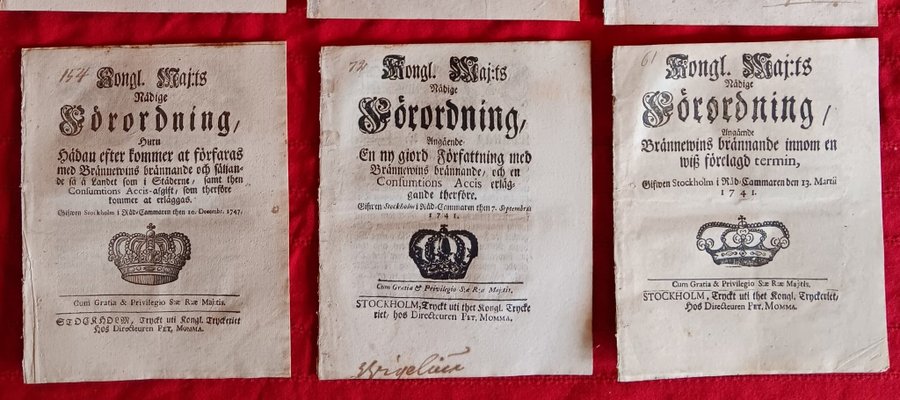 154
Kongl. Maj:ts
Nådige
Förordning,
Huru
Hädan efter kommer at förfaras
med Brännewins brännande och säljan-
de så å Landet som i Städerne, samt then
Consumtions Accis-afgift, som therföre
kommer at erläggas.
Gifwen Stockholm i Råd-Cammaren then 10. Decembr. 1747.
Cum Gratia & Privilegio Sæ Ræ Maj:tis.
STOCKHOLM, Tryckt uti Kongl. Tryckeriet
Hos Directeuren PET. MOMMA.
72
Kongl. Maj:ts
Nådige
Förordning,
Angående
En ny giord Författning med
Brännewins brännande, och en
Consumtions Accis erläg-
gande therföre.
Gifwen Stockholm i Råd-Cammaren then 7. Septembris
1741.
Cum Gratia & Privilegio Sæ Ræ Maj:tis.
STOCKHOLM, Tryckt uti thet Kongl. Trycke
riet, hos Directeuren PET. MOMMA.
61
Kongl. Maj:ts
Nådige
Förordning,
Angående
Brännewins brännande innom en
wiß förelagd termin,
Gifwen Stockholm i Råd-Cammaren den 13. Martii
1741.
Cum Gratia & Privilegio Sæ Ræ Maj:tis.
STOCKHOLM, Tryckt uti thet Kongl. Tryckeriet,
Hos Directeuren PET. MOMMA.